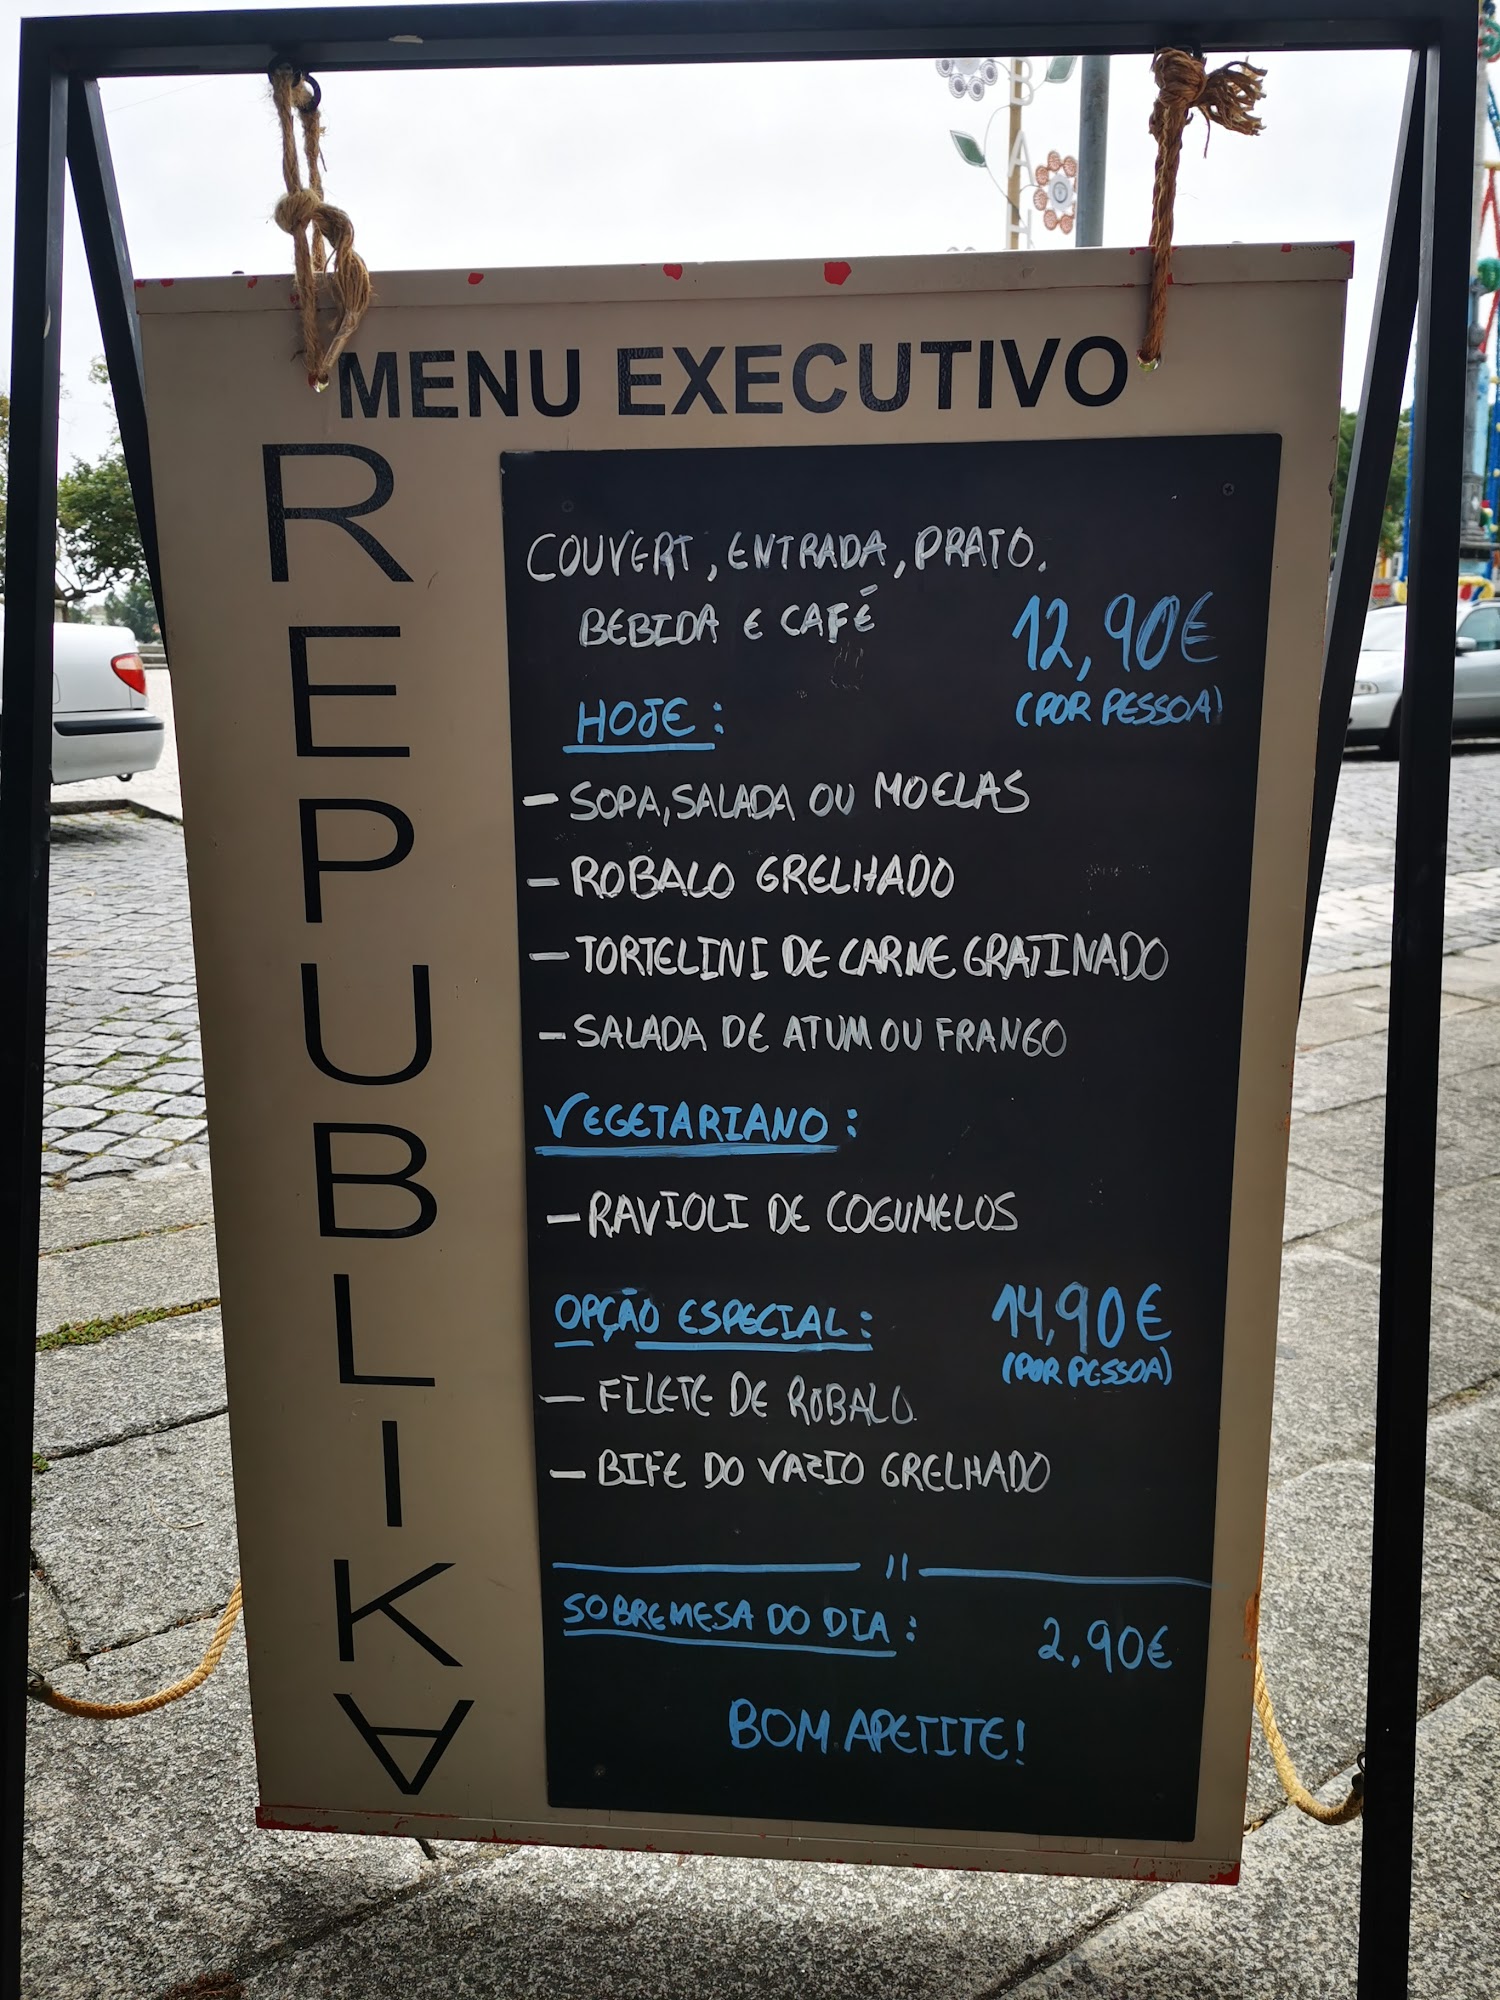 MENU EXECUTIVO
REPUBLIKA
COUVERT, ENTRADA, PRATO.
BEBIDA E CAFÉ
12,90€
(POR PESSOA)
HOJE:
- SOPA, SALADA OU MOELAS
- ROBALO GRELHADO
- TORTELINI DE CARNE GRATINADO
- SALADA DE ATUM OU FRANGO
VEGETARIANO:
- RAVIOLI DE COGUMELOS
OPÇÃO ESPECIAL:
14,90€
(POR PESSOA)
- FILETE DE ROBALO
- BIFE DO VAZIO GRELHADO
SOBREMESA DO DIA:
2,90€
BOM APETITE!